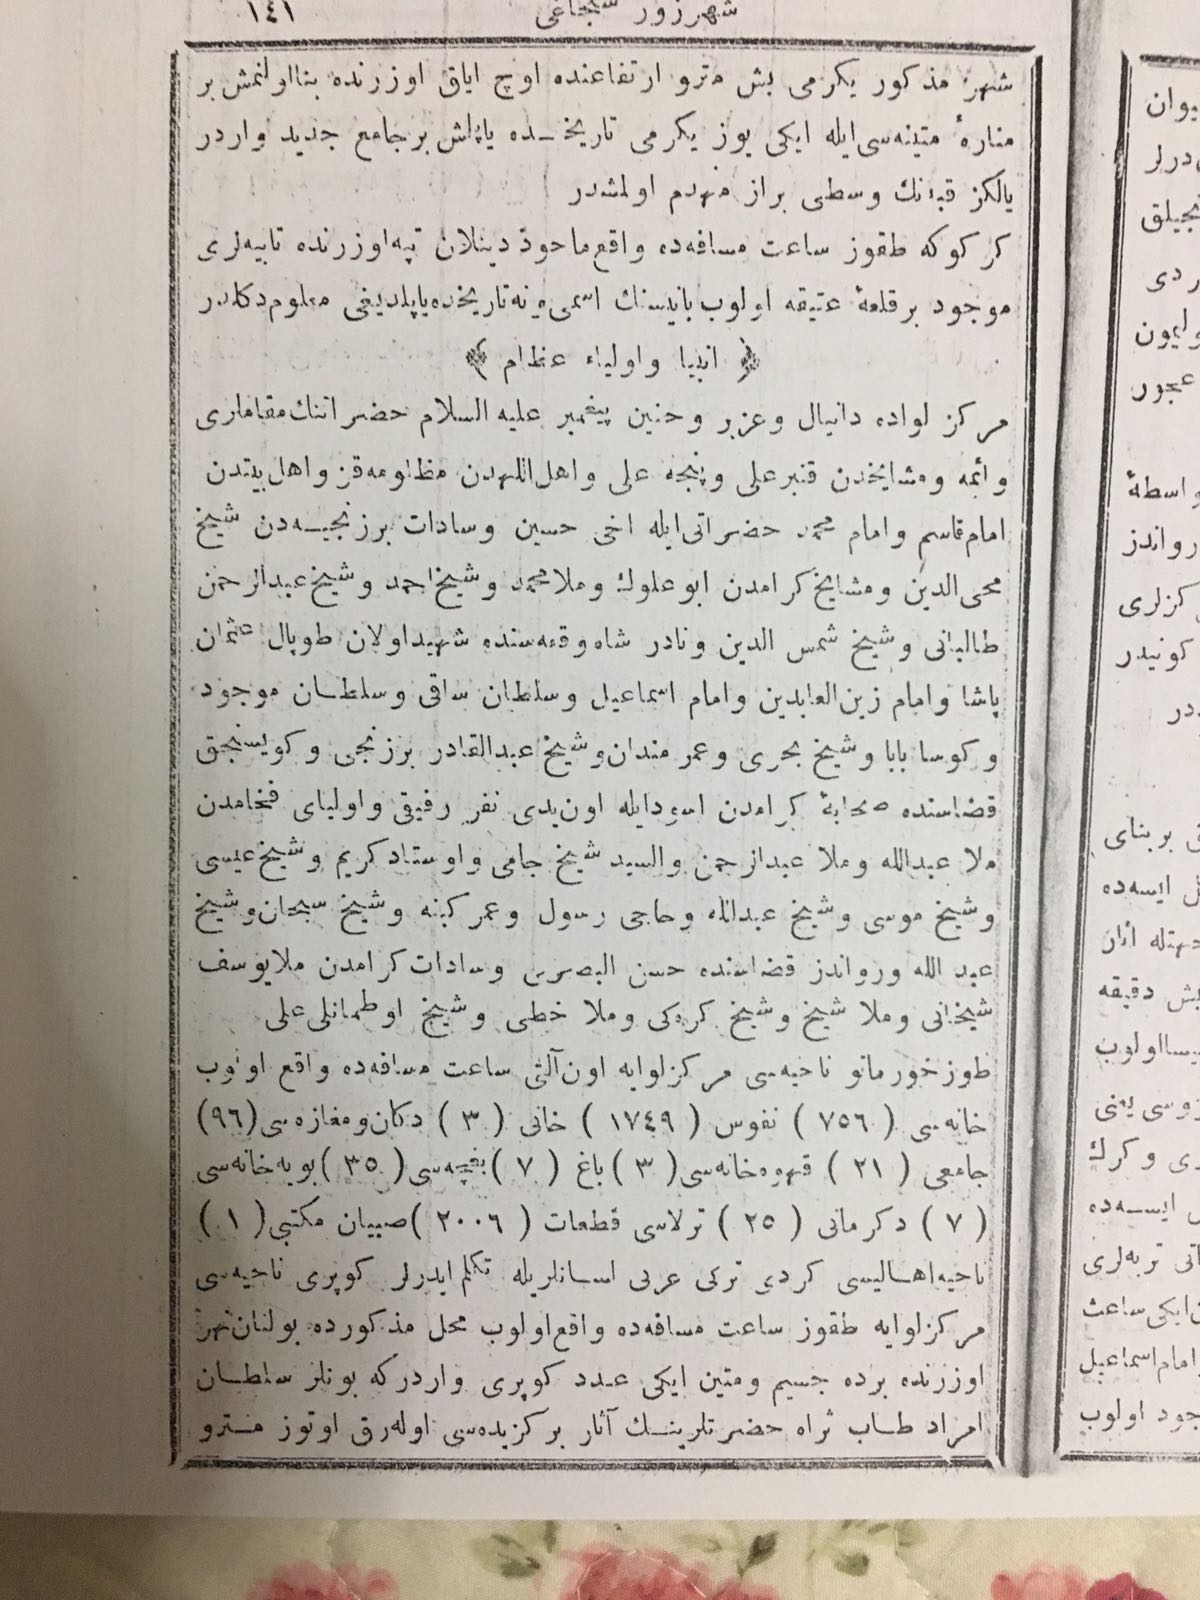 شهرزور سنجاغی ١٤١
شهر مذکور یکرمی بش مترو ارتفاعنده اوچ ایاق اوزرنده بنااولنمش بر
مناره‌ٔ متینه‌سی ایله ایکی یوز یکرمی تاریخـده یاپلش برجامع جدید واردر
یالکز قبه‌نك وسطی براز منهدم اولمشدر
کرکوکه طقوز ساعت مسافه‌ده واقع ماحوذ دینلان تپه‌اوزرنده تابیه‌لری
موجود برقلعهٔ عتیقه اولوب بانیسنك اسمی ونه تاریخده یاپلدیغی معلوم دکلدر
﴿ انبیا واولیاء عظام ﴾
مرکز لواده دانیال وعزیر وحنین پیغمبر علیه السلام حضراتنك مقاملری
وائمه ومشایخدن قنبرعلی وپنجه علی واهل اللهدن مظلومه قز واهل بیتدن
امام قاسم وامام محمد حضراتی ایله اخی حسین وسادات برزنجیـه‌دن شیخ
محی الدین ومشایخ کرامدن ابوعلوك وملامحمد وشیخ احمد وشیخ عبدالرحمن
طالبانی وشیخ شمس الدین ونادر شاه وقعه‌سنده شهیداولان طوپال عثمان
پاشا وامام زین العابدین وامام اسماعیل وسلطان ساقی وسلطـان موجود
وکوسا بابا وشیخ بحری وعمر مندان وشیخ عبدالقادر برزنجی وکویسنجق
قضاسنده صحابهٔ کرامدن اسودایله اون یدی نفر رفیقی واولیای فخامدن
ملا عبدالله وملا عبدالرحمن والسید شیخ جامی واوستاد کریم وشیخ عیسی
وشیخ موسی وشیخ عبدالله وحاجی رسول وعمر کبنه وشیخ سبحان وشیخ
عبد الله ورواندز قضاسنده حسن البصری وسادات کرامدن ملایوسف
شیخانی وملا شیخ وشیخ کرەکی وملا خطی وشیخ اوطمانلی علی
طوزخورماتو ناحیه‌سی مرکزلوایه اون آلتی ساعت مسافه‌ده واقع اولوب
خانه‌سی ( ٧٥٦ ) نفوس ( ١٧٤٩ ) خانی ( ٣ ) دکان ومغازه‌سی (٩٦)
جامعی ( ٢١ ) قهوه‌خانه‌سی ( ٣ ) باغ ( ٧ ) بغچه‌سی ( ٣٥ ) بویه‌خانه‌سی
( ٧ ) دکرمانی ( ٢٥ ) ترلاسی قطعات ( ٢٠٠٦ ) صبیان مکتبی ( ١ )
ناحیه‌اهـالیسی کردی ترکی عربی لسـانلریله تکلم ایدرلر کوپری ناحیه‌سی
مرکزلوایه طقوز ساعت مسافه‌ده واقع اولوب محل مذکورده بولنان نهر
اوزرنده برده جسیم ومتین ایکی عـدد کوپری واردرکه بونلر سلطـان
مراد طـاب ثراه حضرتلرینـك آثار برکزیده‌سی اوله‌رق اوتوز مـترو